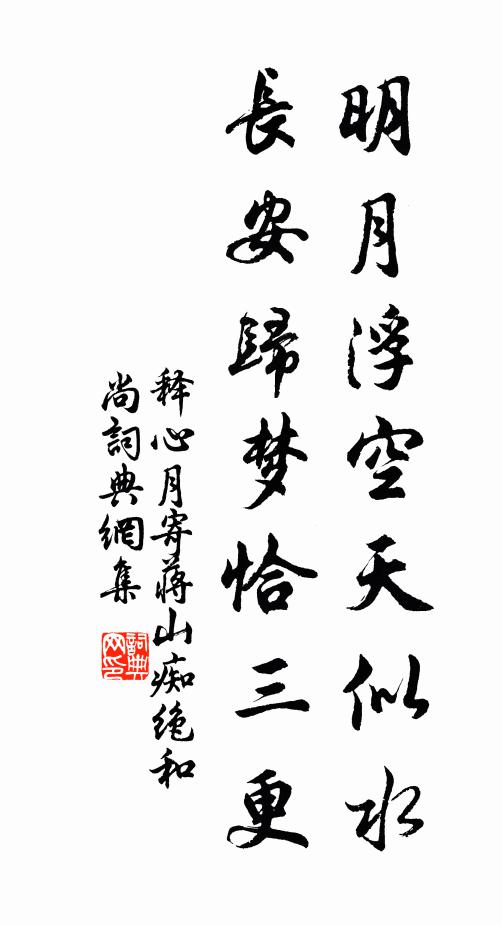 明月浮空天似水
長安歸梦恰三更
释心月寄蔣山痴绝和
尚詞典網集
詞典网印